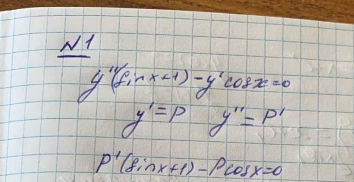 N1
y''(sinx+1)-y'cosx=0
y'=P y''=P'
P'(sinx+1)-Pcosx=0